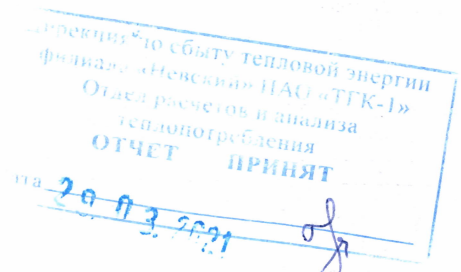 Дирекция по сбыту тепловой энергии
филиала «Невский» ПАО «ТГК-1»
Отдел расчетов и анализа
теплопотребления
ОТЧЕТ ПРИНЯТ
20 03 2021